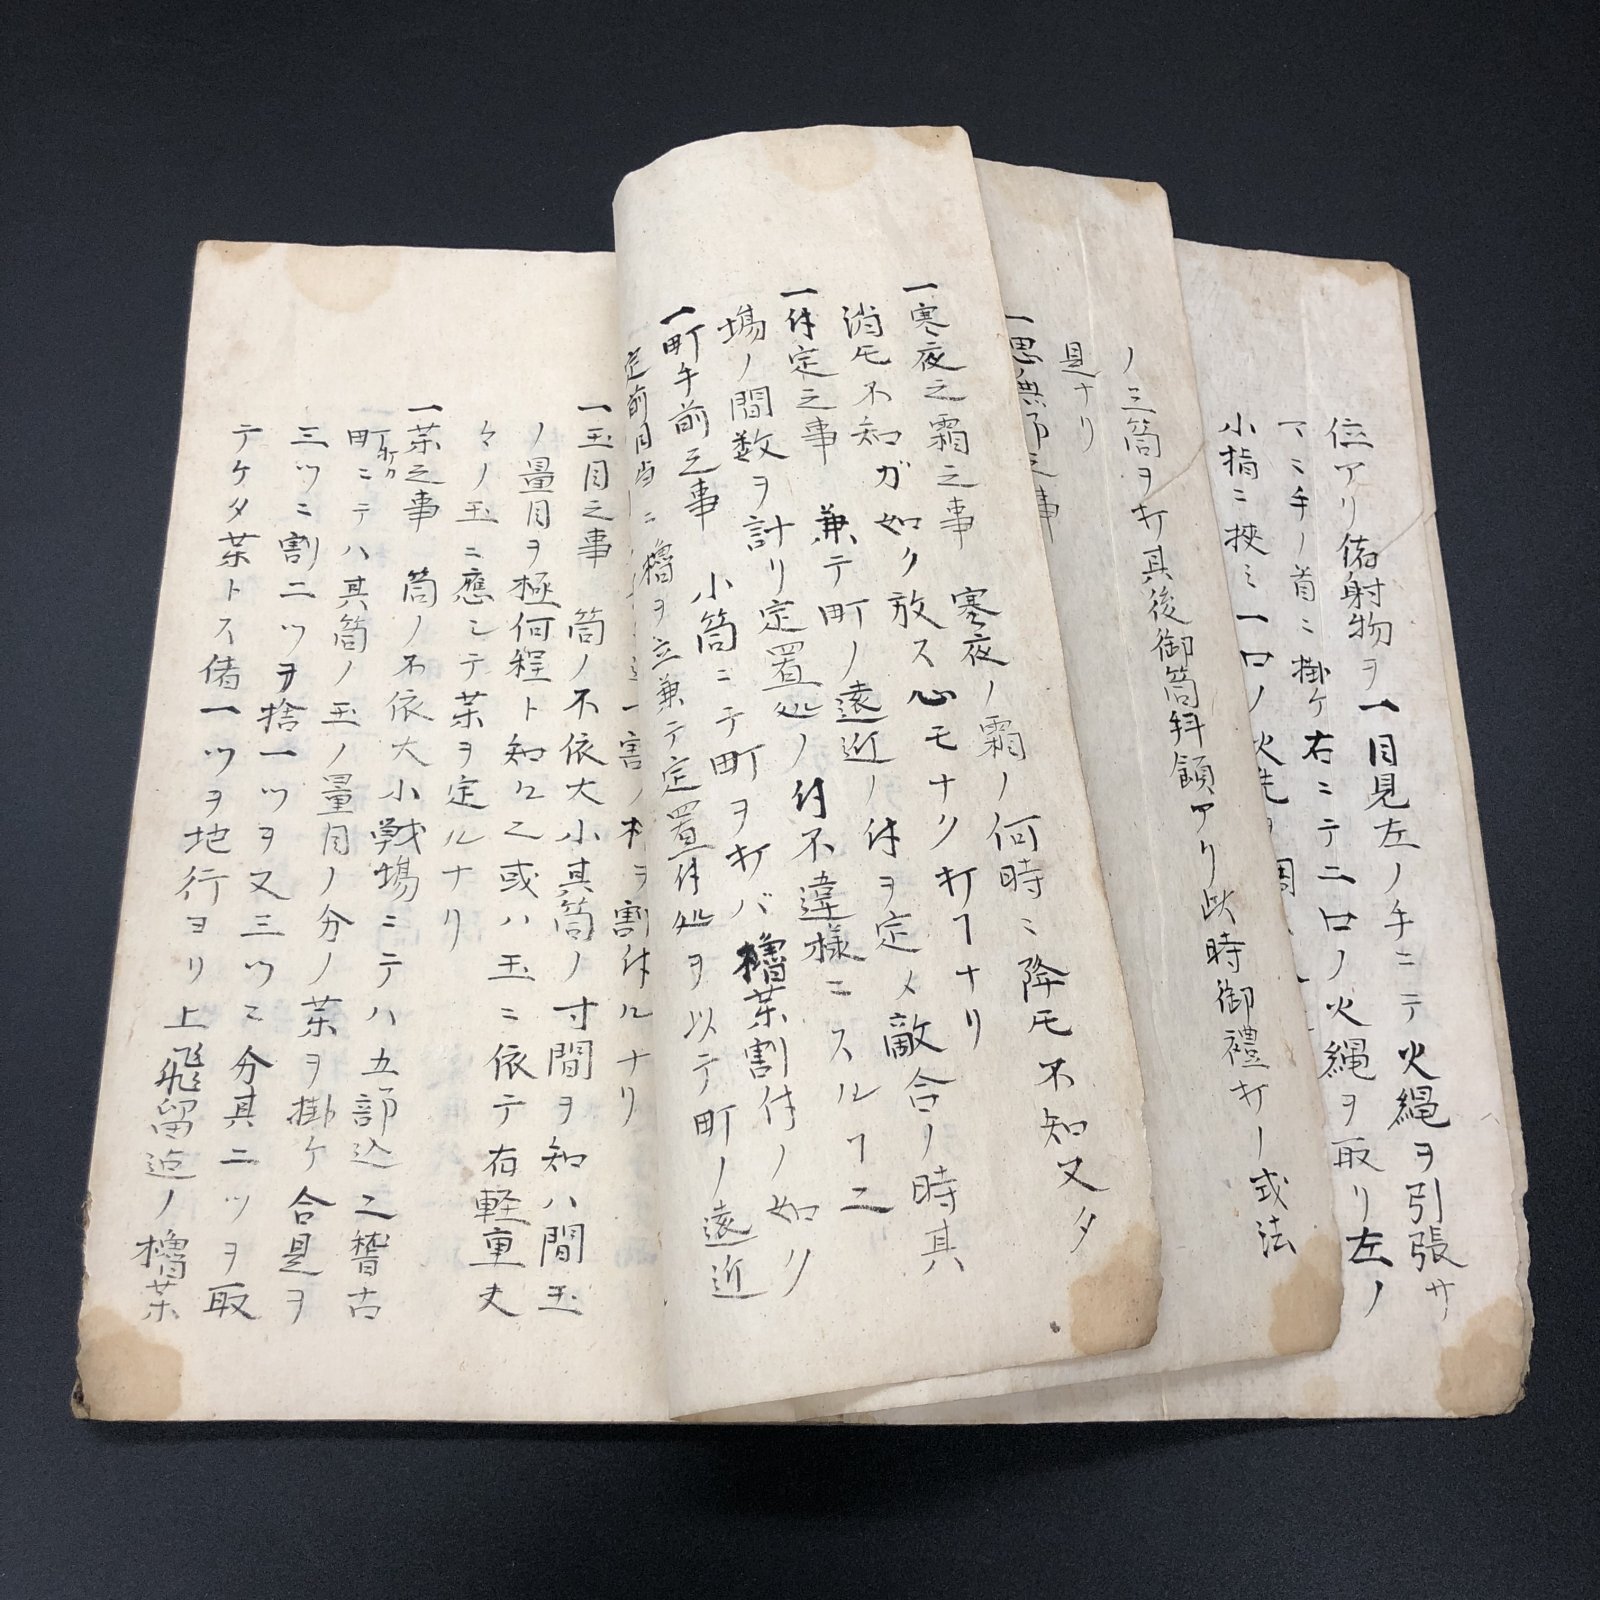 位アリ偖射物ヲ一目見左ノ手ニテ火縄ヲ引張サ
マニ手ノ首ニ掛ケ右ニテ二口ノ火縄ヲ取リ左ノ
小指ニ挾ミ一口ノ火
ノ三筒ヲ打其後御筒拝領アリ此時御禮打ノ式法
是ナリ
一思無邪之事
一寒夜之霜之事 寒夜ノ霜ノ何時ニ降トモ不知又タ
消トモ不知ガ如ク放ス心モナク打ヿナリ
一付定之事 兼テ町ノ遠近ノ付ヲ定メ敵合ノ時其
場ノ間数ヲ計リ定置処ノ付不違様ニスルヿ
一町手前之事 小筒ニテ町ヲ打バ櫓薬割付ノ如ク
定前目当ニ櫓ヲ立兼テ定置付処ヲ以テ町ノ遠近
一割ノ木ヲ割付ルナリ
一玉目之事 筒ノ不依大小其筒ノ寸間ヲ知ハ間玉
ノ量目ヲ極何程ト知ル之或ハ玉ニ依テ右軽重夫
々ノ玉ニ應シテ薬ヲ定ルナリ
一薬之事 筒ノ不依大小戦場ニテハ五部込之稽古
町ニテハ其筒ノ玉ノ量目ノ分ノ薬ヲ掛ケ合是ヲ
三ツニ割二ツヲ捨一ツヲ又三ツニ分其二ツヲ取
テケタ薬トス偖一ツヲ地行ヨリ上飛留迠ノ櫓薬